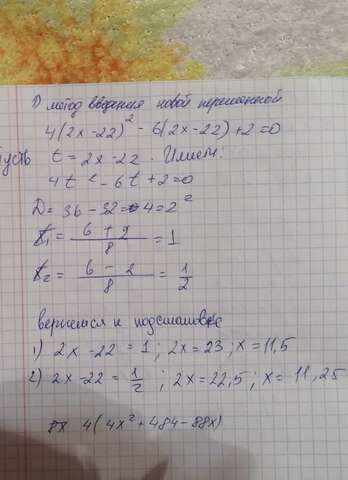 1) метод введения новой переменной
4(2x-22)² - 6(2x-22)+2=0
Пусть t = 2x-22. Имеем:
4t² - 6t + 2=0
D= 36 - 32 = 4 = 2²
t₁ = (6 + 2)/8 = 1
t₂ = (6 - 2)/8 = 1/2
вернемся к подстановке
1) 2x - 22 = 1; 2x = 23; x = 11,5
2) 2x - 22 = 1/2; 2x = 22,5; x = 11,25
4(4x² + 484 - 88x)